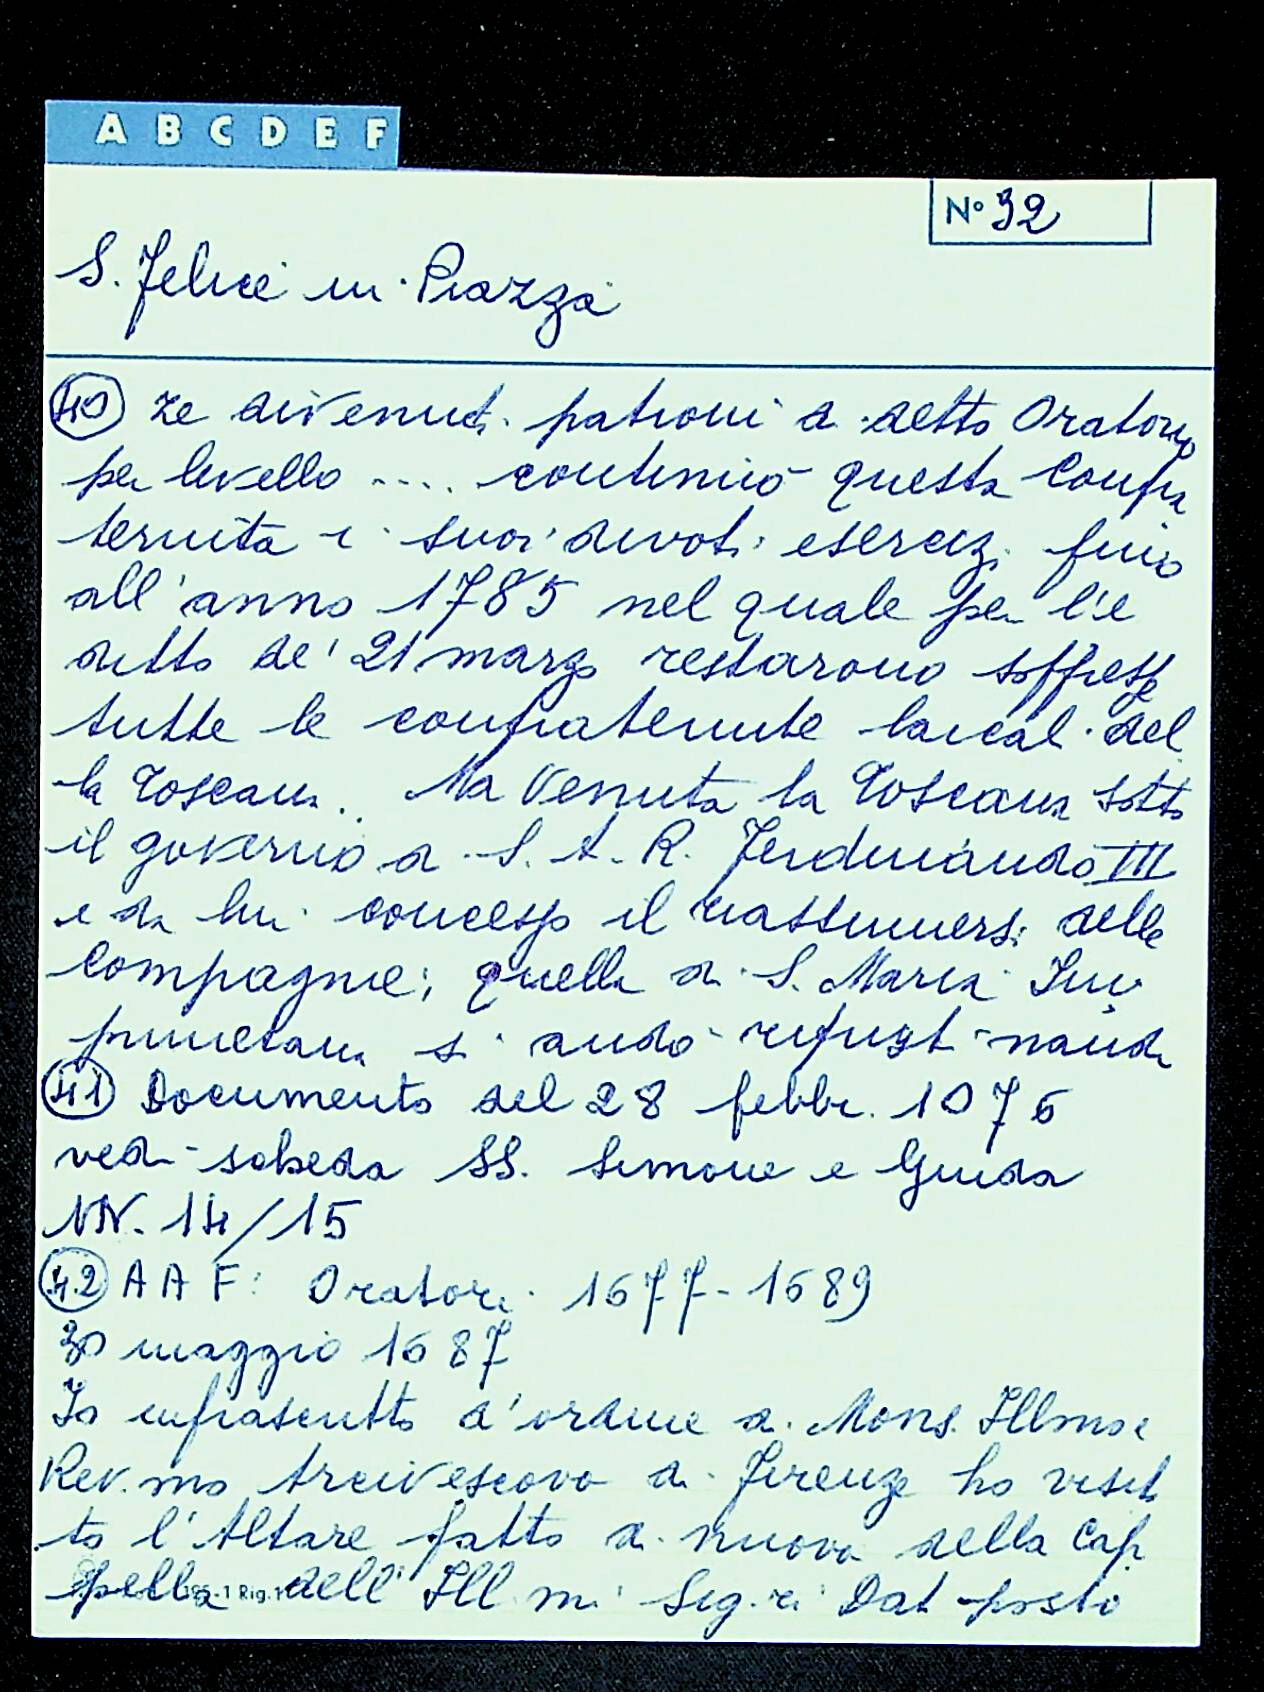 A B C D E F
N° 32
S. Felice in Piazza
40 ze divenuti patroni di detto Oratorio
per livello .... continuò questa confra
ternita i suoi divoti esercizi fino
all'anno 1785 nel quale per l'e
ditto de' 21 marzo restarono soppresse
tutte le confraternite laicali del
la Toscana. Ma venuta la Toscana sotto
il governo di S. A. R. Ferdinando III
e da lui concesso il riassumersi delle
Compagnie; quella di S. Maria Im
prunetana si andò
41 Documento del 28 febbr. 1076
vedi scheda SS. Simone e Giuda
NN. 14/15
42 A A F: Oratori 1677-1689
30 maggio 1687
Io infrascritto d'ordine di Mons. Illmo e
Rev.mo Arcivescovo di Firenze ho visita
to l'Altare fatto di nuovo della Cap
pella dell' Ill.mi Sig.ri Dati posto